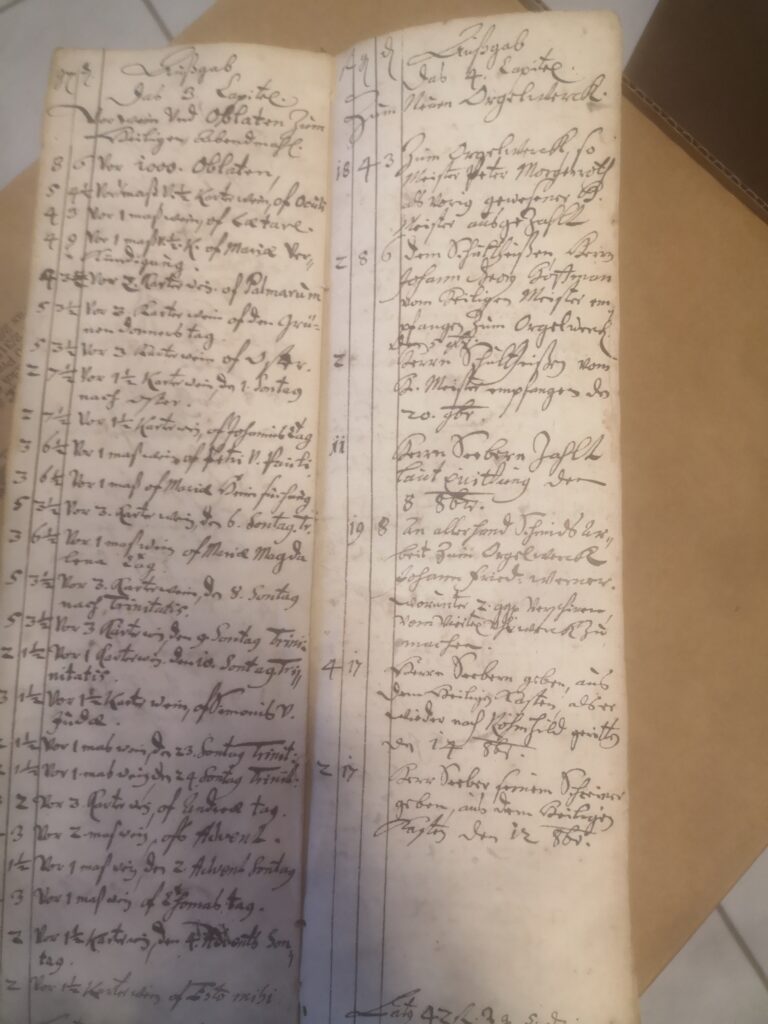 g d Außgab
Das 3 Capitel.
Vor wein und Oblaten zum
Heiligen Abendmahl.
8 6 Vor 1000. Oblaten,
5 4½ Vor 1 maß V. ½ Karte wein, of Oculi
4 3 Vor 1 maß wein, of Lætare.
4 9 Vor 1 maß V. ½ K. of Mariæ Ver-
kündigung.
4 3½ Vor 2. Karte wein. of Palmarum
5 3½ Vor 3. Karte wein of den Grü-
nen donners tag.
5 3½ Vor 3 Karte wein of Oster.
2 7½ Vor 1½ Karte wein, den 1. Sontag
nach Oster.
2 7½ Vor 1½ Karte wein, of Johannis Tag
3 6½ Vor 1 maß wein of Petri V. Pauli
3 6½ Vor 1 maß of Mariæ Heimsuchung
5 3½ Vor 3. Karte wein, den 6. Sontag. tr.
3 6½ Vor 1 maß wein of Mariæ Magda
lena Tag
5 3½ Vor 3. Karte wein, den 8. Sontag
nach, Trinitatis.
5 3½ Vor 3 Karte wein den 9 Sontag Trini-
2 1½ Vor 1 Karte wein. den 10. Sontag Tri-
nitatis.
3 1½ Vor 1½ Karte wein, of Simonis V.
Judæ.
1½ Vor 1 maß wein, den 23. Sontag Trinit:
1½ Vor 1 maß wein den 24. Sontag Trinit:
2 Vor 3. Karte wein, of Andreæ tag.
3 Vor 2 maß wein, of Advent.
1½ Vor 1 maß wein, den 2. Advent Sontag
3 Vor 1 maß wein of Thomas tag.
2 Vor 1½ Karte wein, den 4. Advents Son
tag.
2 Vor 1½ Karte wein of Esto mihi
g d Außgab
Das 4. Capitel.
Zum Neuen Orgelwerck.
18 4 3 Zum Orgelwerck, so
Meister Peter Morgenroth
als vorig gewesener H.
Meister ausgezahlt
2 8 6 dem Schultheißen, Herrn
Johann Georg Hoffman
vom Heiligen Meister em
pfangen zum Orgelwerck
2 Herrn Schultheißen vom
H. Meister empfangen den
20. 9br.
11 Herrn Seebern Zahlt
laut quittung den
8 8br.
19 8 An allerhand Schmids Ar-
beit zum Orgelwerck
Johann Fried: Werner.
worunter 2.
vom Uhrwerck zu
machen.
4 17 Herrn Seebern geben, aus
dem Heiligen Kasten, als er
wieder nach Römhild geritten
den 14 8br.
2 17 Herr Seeber seinem Schreiner
geben, aus dem Heiligen
Kasten den 12 8br.